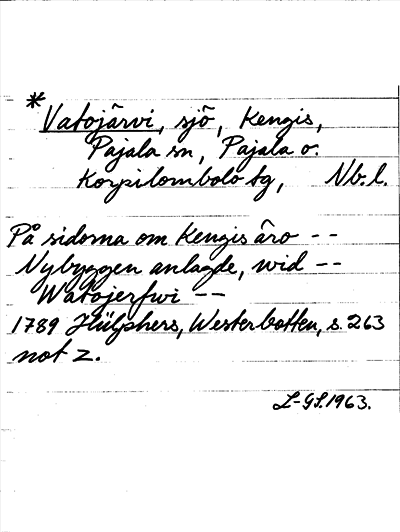 *
Vatojärvi, sjö, Kengis,
Pajala sn, Pajala o.
Korpilombolo tg, Nb. l.
På sidorna om Kengis äro --
Nybyggen anlagde, wid --
Watojerfwi --
1789 Hülphers, Westerbotten, s. 263
not z.
L-GS. 1963.